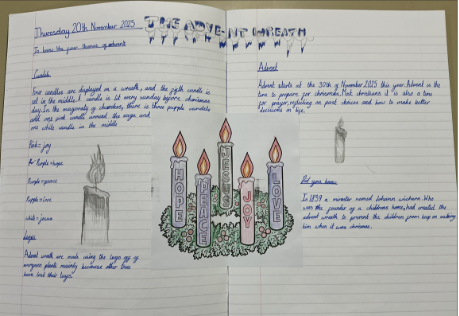 Thursday 20th November 2025
THE ADVENT WREATH
To know the four themes of advent
Candels
Four candles are displayed on a wreath, and the fifth candle is
sat in the middle. 1 candle is lit every sunday before christmas
day. In the majority of churches, there is three purple candels
with one pink candel around the edge, and
one white candle in the middle
Pink = joy
Purple = hope
Purple = peace
Purple = love
white = jesus
Advent wreath are made using the leaves of
evergreen plants mainly because other trees
have lost their leaves
HOPE
PEACE
JESUS
JOY
LOVE
Advent
Advent starts at the 30th of November 2025 this year. Advent is the
time to prepare for christmas. Most christians it is also a time
for prayer, reflecting on past choices and how to make better
decisions in life.
Did you know
In 1839 a minister named Johann wichern. Who
was the founder of a childrens home, had created the
advent wreath to prevend the children from keep on asking
him when it was christmas.